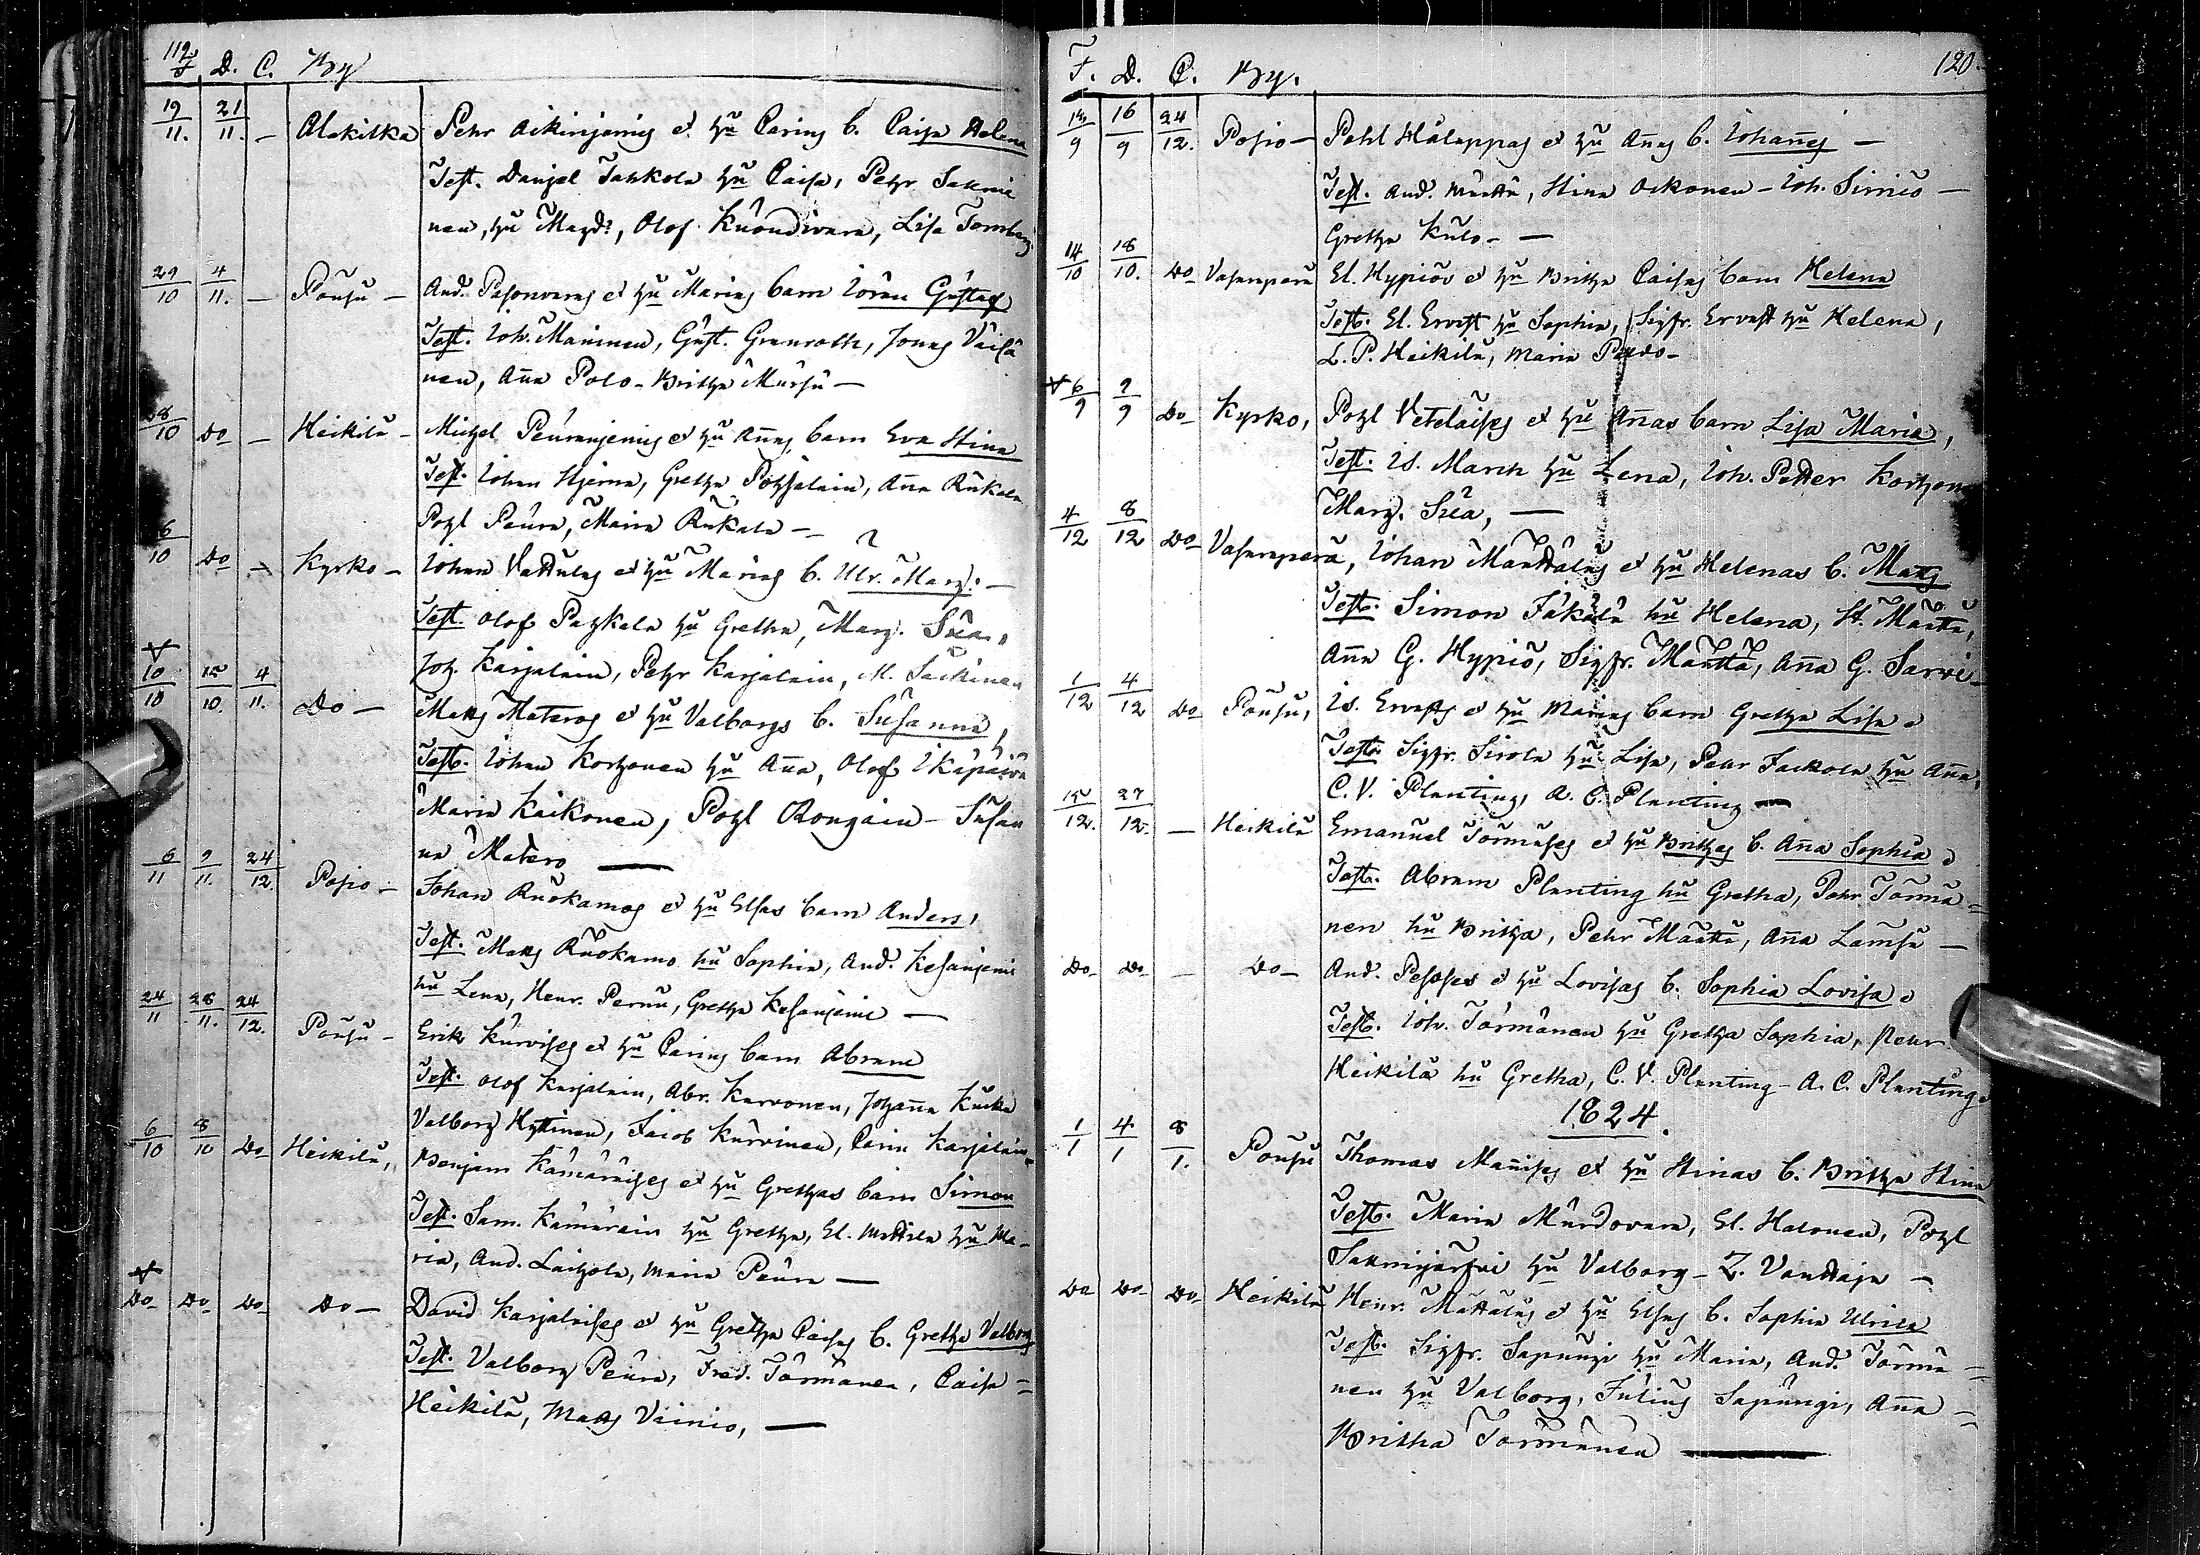 119
F. D. C. By
19/11. 21/11. — Alakitka Pehr Aikinjemis et hu Carins b. Caisa Helena
Test. Daniel Taskola hu Caisa, Pehr Salmi
nen, hu Magd:, Olof Kuondivara, Lisa Tornberg
29/10 4/11. — Pousu — And. Pasonvaras et hu Marias barn Jöran Gustaf
Test. Joh. Maninen, Gust. Granroth, Jonas Väisä
nen, Aña Polo - Britha Mursu —
28/10 Do — Heikilä — Michel Peuranjemis et hu Añas barn Eva Stina
Test. Johan Hjerne, Gretha Pohjalain, Aña Rukala
Pohl Peura, Maria Rukala —
6/10 Do — Kyrko — Johan Vattulas et hu Marias b. Ulr. Marg: —
Test. Olof Paskala hu Gretha, Marg. Sua
Joh. Karjalain, Pehr Karjalain, M. Säkinen
10/10 12/10. 4/11. Do — Matts Materos et hu Valborgs b. Susanna,
Test. Johan Korhonen hu Aña, Olof
Maria Kaikonen, Pohl Rongain - Susan
na Matero —
6/11 9/11. 24/12. Posio — Johan Ruokamos et hu Elsas barn Anders,
Test. Matts Ruokamo hu Sophia, And. Kesänjemi
hu Lena, Henr. Pernu, Gretha Kesänjemi —
24/11 28/11. 24/12. Pousu — Erik Kurvises et hu Carins barn Abram
Test. Olof Karjalain, Abr. Karvonen, Johanna Kucka
Valborg Hyttinen, Jacob Kurvinen, Carin Karjalain
6/10 8/10 Do Heikilä, Benjam Kämäräises et hu Grethas barn Simon
Test. Sam. Kämäräin hu Gretha, El. Mattila hu Ma-
ria, And. Laihola, Maria Peura —
Do Do Do Do — David Karjalaises et hu Gretha Caisas b. Gretha Valborg
Test. Valborg Peura, Fred. Törmänen, Caisa
Heikilä, Matts Väinio, —
F. D. C. By. 120.
13/9 16/9 24/12. Posio — Pohl Hälappas et hu Añas b. Johañes —
Test. And. Määttä, Stina Oikonen - Joh. Sirniö —
Gretha Kulo - —
14/10 18/10. Do Vasaraperä El. Hypiös et hu Britha Caisas barn Helena
Test. El. Ervast hu Sophia, Sigfr. Ervast hu Helena,
L. P. Heikilä, Maria Pudo -
6/9 9/9 Do Kyrko, Pohl Vetelaises et hu Añas barn Lisa Maria,
Test. Is. March hu Lena, Joh. Petter Korhonen
Marg. Sua, —
4/12 8/12 Do Vasaraperä, Johan Mänttäläs et hu Helenas b. Matts
Test. Simon Jäkälä hu Helena, H. Määttä,
Aña G. Hypiö, Sigfr. Määttä, Aña G. Sarvi -
1/12 4/12 Do Pousu, Is. Ervasts et hu Marias barn Gretha Lisa
Test. Sigfr. Sirola hu Lisa, Pehr Jaekola hu Aña,
C. V. Planting, A. C. Planting —
15/12. 27/12. — Heikilä Emanuel Törmäses et hu Brithas b. Aña Sophia
Test. Abram Planting hu Gretha, Pehr Törmä=
nen hu Britha, Pehr Määttä, Aña Lamsa —
Do Do — Do — And. Pesoses et hu Lovisas b. Sophia Lovisa
Test. Joh. Törmänen hu Gretha Sophia, Pehr
Heikilä hu Gretha, C. V. Planting - A. C. Planting
1824.
1/1 4/1 8/1. Pousu Thomas Mañises et hu Stinas b. Britha Stina
Test. Maria Murdovara, El. Halonen, Pohl
Salmijärfvi hu Valborg - Z. Vanttaja —
Do Do Do Heikilä Henr. Mattalas et hu Elsas b. Sophia Ulrica
Test. Sigfr. Sapungi hu Maria, And. Törmä=
nen hu Valborg, Julius Sapungi, Aña =
Britha Törmänen —